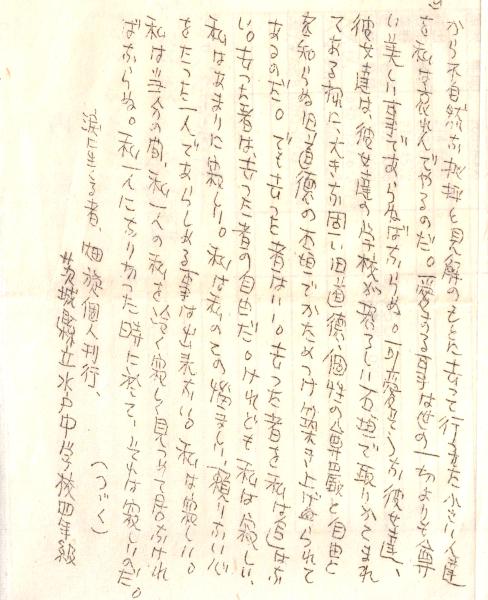 から不自然な批評と見解のもとに去って行くまた小さい人達
を私は哀れんでやるのだ。愛する事は世の一切よりも尊
い美しい事であらねばならぬ。可愛そうな彼女達、
彼女達は、彼女達の学校が恐ろしい石垣で取りかこまれ
てある様に、大きな固い旧道徳、個性の尊厳と自由と
を知らぬ旧道徳の石垣でかためつけ築き上げられて
あるのだ。でも去った者はいい。去った者を私は追はな
い。去った者は去った者の自由だ。けれども私は寂しい、
私はあまりに寂しい。私は私のこの悩ましい、頼りない心
をたった一人であらしめる事は出来ない。私は寂しい。
私は当分の間、私一人の私を冷く寂しく見つめて居なけれ
ばならぬ。私一人になり切った時に於て、それは寂しいのだ。
(つづく)
涙に生くる者、畑旋個人刊行、
茨城縣立水戸中学校四年級